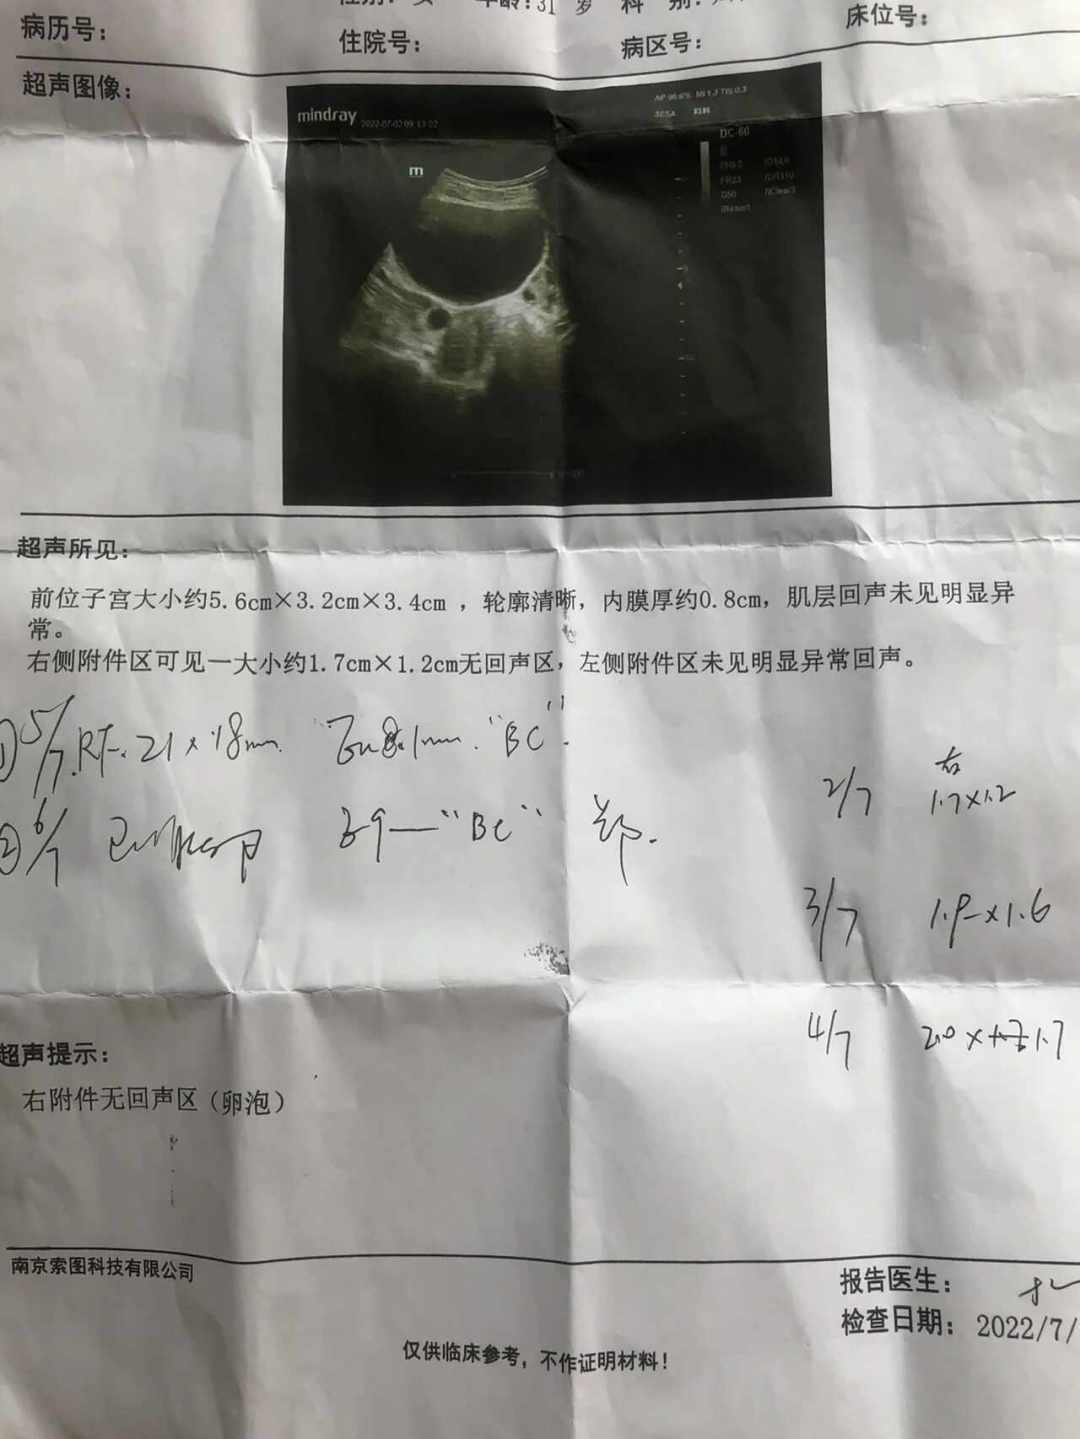 性别：女 年龄：31 岁 科 别：
病历号：
住院号：
病区号：
床位号：
超声图像：
mindray
2022-07-02 09:13:22
DC-60
超声所见：
前位子宫大小约5.6cm×3.2cm×3.4cm ，轮廓清晰，内膜厚约0.8cm，肌层回声未见明显异
常。
右侧附件区可见一大小约1.7cm×1.2cm无回声区，左侧附件区未见明显异常回声。
① 5/7 RF. 21×18mm. "BC".
② 6/7 "BC"
2/7 右 1.7×1.2
3/7 1.9×1.6
4/7 2.0×1.7
超声提示：
右附件无回声区（卵泡）
南京索图科技有限公司
报告医生：
检查日期：2022/7/
仅供临床参考，不作证明材料！